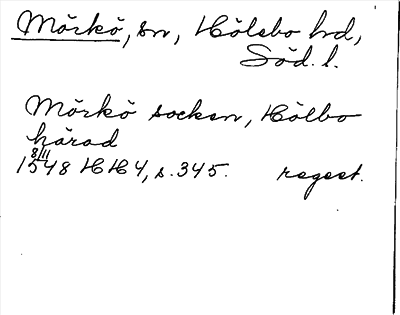 Mörkö, sn, Hölebo hd,
Söd. l.
Mörkö socken, Hölbo
härad
8/11
1548 HH4, s. 345. regest.